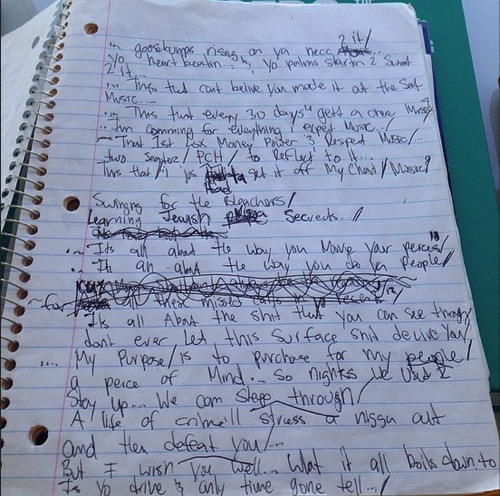 goosebumps rising on ya necc 2 it/
yo heart beatin... & yo palms startin 2 sweat
2 it...
This that cant belive you made it out the
Music...
This that every 30 days gett a chec Music
Im comming for everything I expect Music...
~ That 1st Lox Money Power & Respect Music/...
two seater/ PCH/ to Reflect to it...
This that I jus get it off My Chest/ Music/
Swinging for the Bleachers/
Learning Jewish Secrects //
Its all about the way you Move your peices/
Its all about the way you do yo People/
all these missed calls in yo
Its all About the shit that you can see through/
dont ever let this Surface shit decive you/
.... My Purpose/ is to purchase for my people/
A peice of Mind... So nights We Used 2
Stay up... We can Sleep through/
A life of crime'll stress a nigga out
and then defeat you/...
But I wish you well... What it all boils down to
Is yo drive & only time gone tell.../